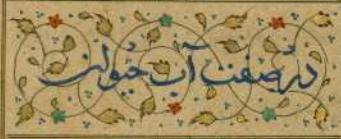 در صفت آب حیوان